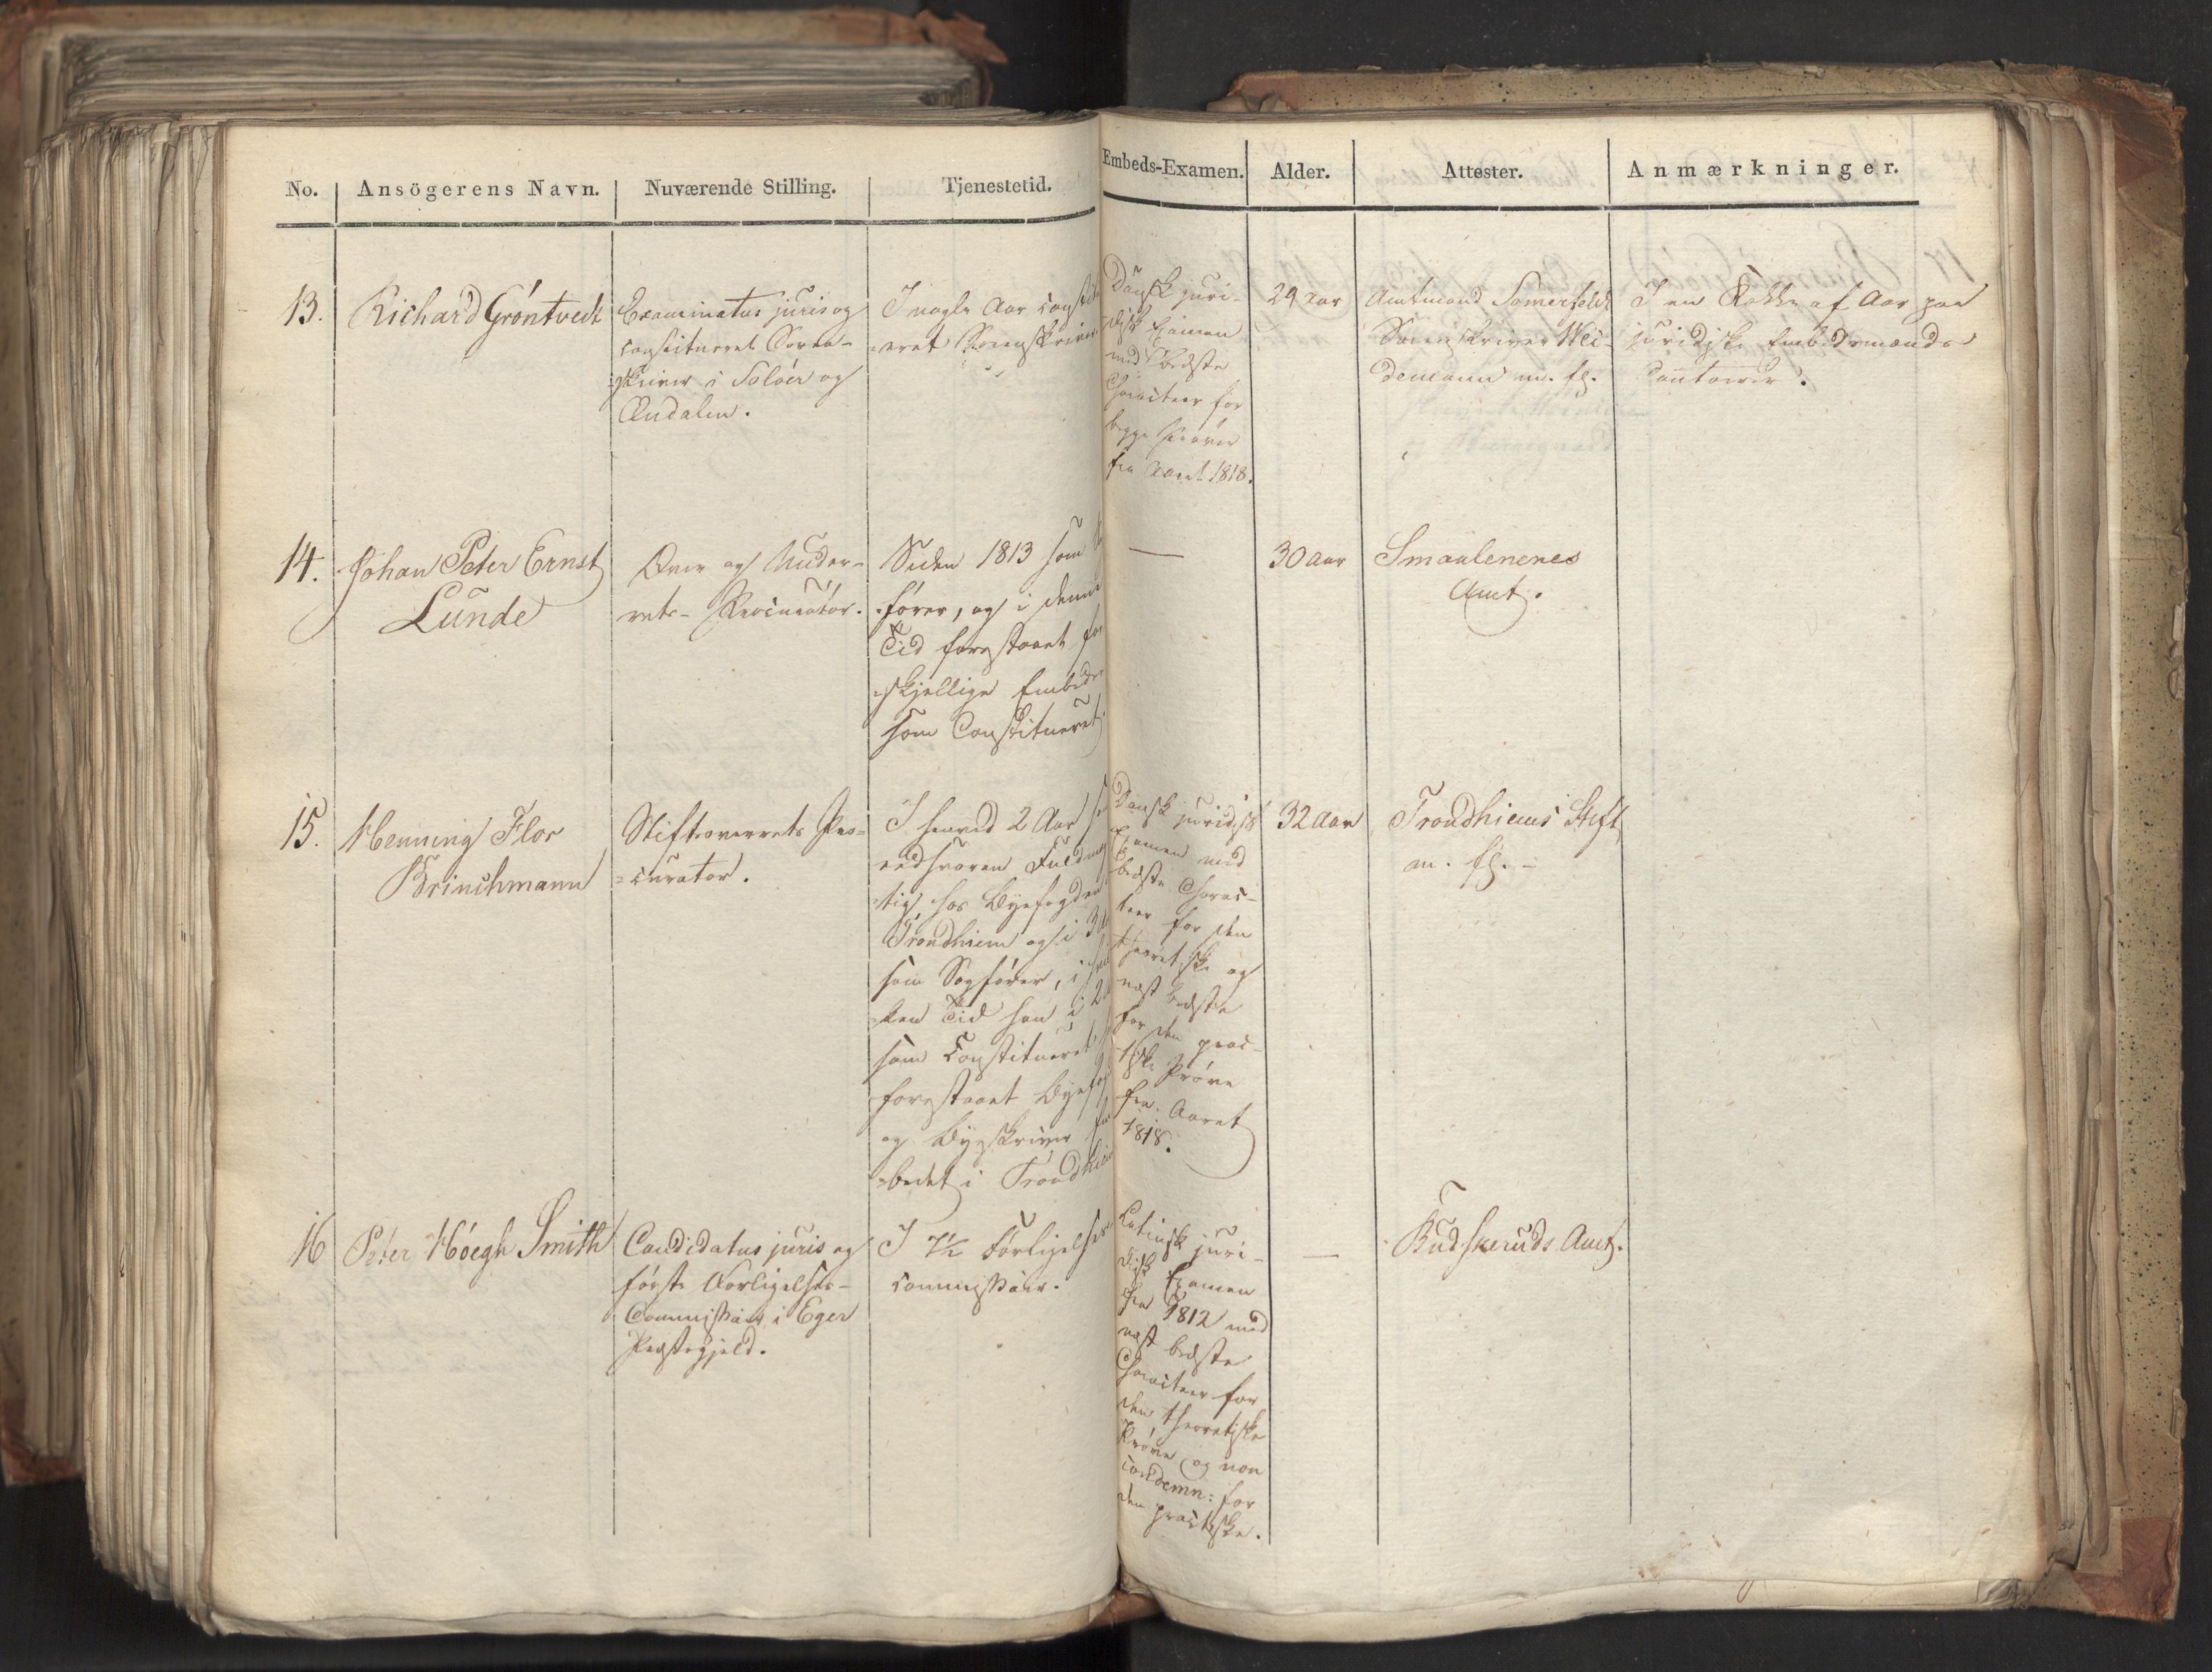 No. Ansögerens Navn. Nuværende Stilling. Tjenestetid.
Embeds-Examen. Alder. Attester. Anmærkninger.
13. Richard Gröntvedt
Examinatus juris og
constitueret Soren-
skriver i Solöer og
Ͻsterdalen.
I nogle Aar constitu
=eret Sorenskriver
Dansk juri-
disk Examen
med bedste
Characteer for
begge Prøver
fra Aaret 1818.
29 Aar
Amtmand Sommerfeldt
Sorenskriver Wei-
demann m. fl.
I en Række af Aar paa
juridiske Embedsmænds
Contoirer.
14. Johan Peter Ernst
Lunde
Over og Under-
rets-Procurator.
Siden 1813 som
fører, og i denne
Tid forestaaet for
=skjellige Embeder
som Constitueret.
—
30 Aar
Smaalenenes
Amt.
15. Henning Flor
Brinchmann
Stiftsoverrets Pro-
=curator.
I henved 2 Aar
eedsvoren Fuldmæg
=tig hos Byefogden
Trondhiem og i 3
som Sagfører, i hvil
=ken Tid han i 2
som Constitueret
forestaaet Byefog
og Byskriver
=bedet i Trondhiem
Dansk juridisk
Examen med
bedste Charac-
teer for den
theoretiske og
næst bedste
for den prac-
tiske Prøve
fra Aaret
1818.
32 Aar
Trondhiems Stift
m. fl. -
16 Peter Höegh Smith
Candidatus juris og
første Forligelses-
Commissair i Eger
Præstegjeld.
I 7½ Forligelses
commissair.
Latinsk juri-
disk Examen
fra 1812 med
næst bedste
Characteer for
den theoretiske
Prøve og non
contemn: for
den practiske.
—
Budskeruds Amt.